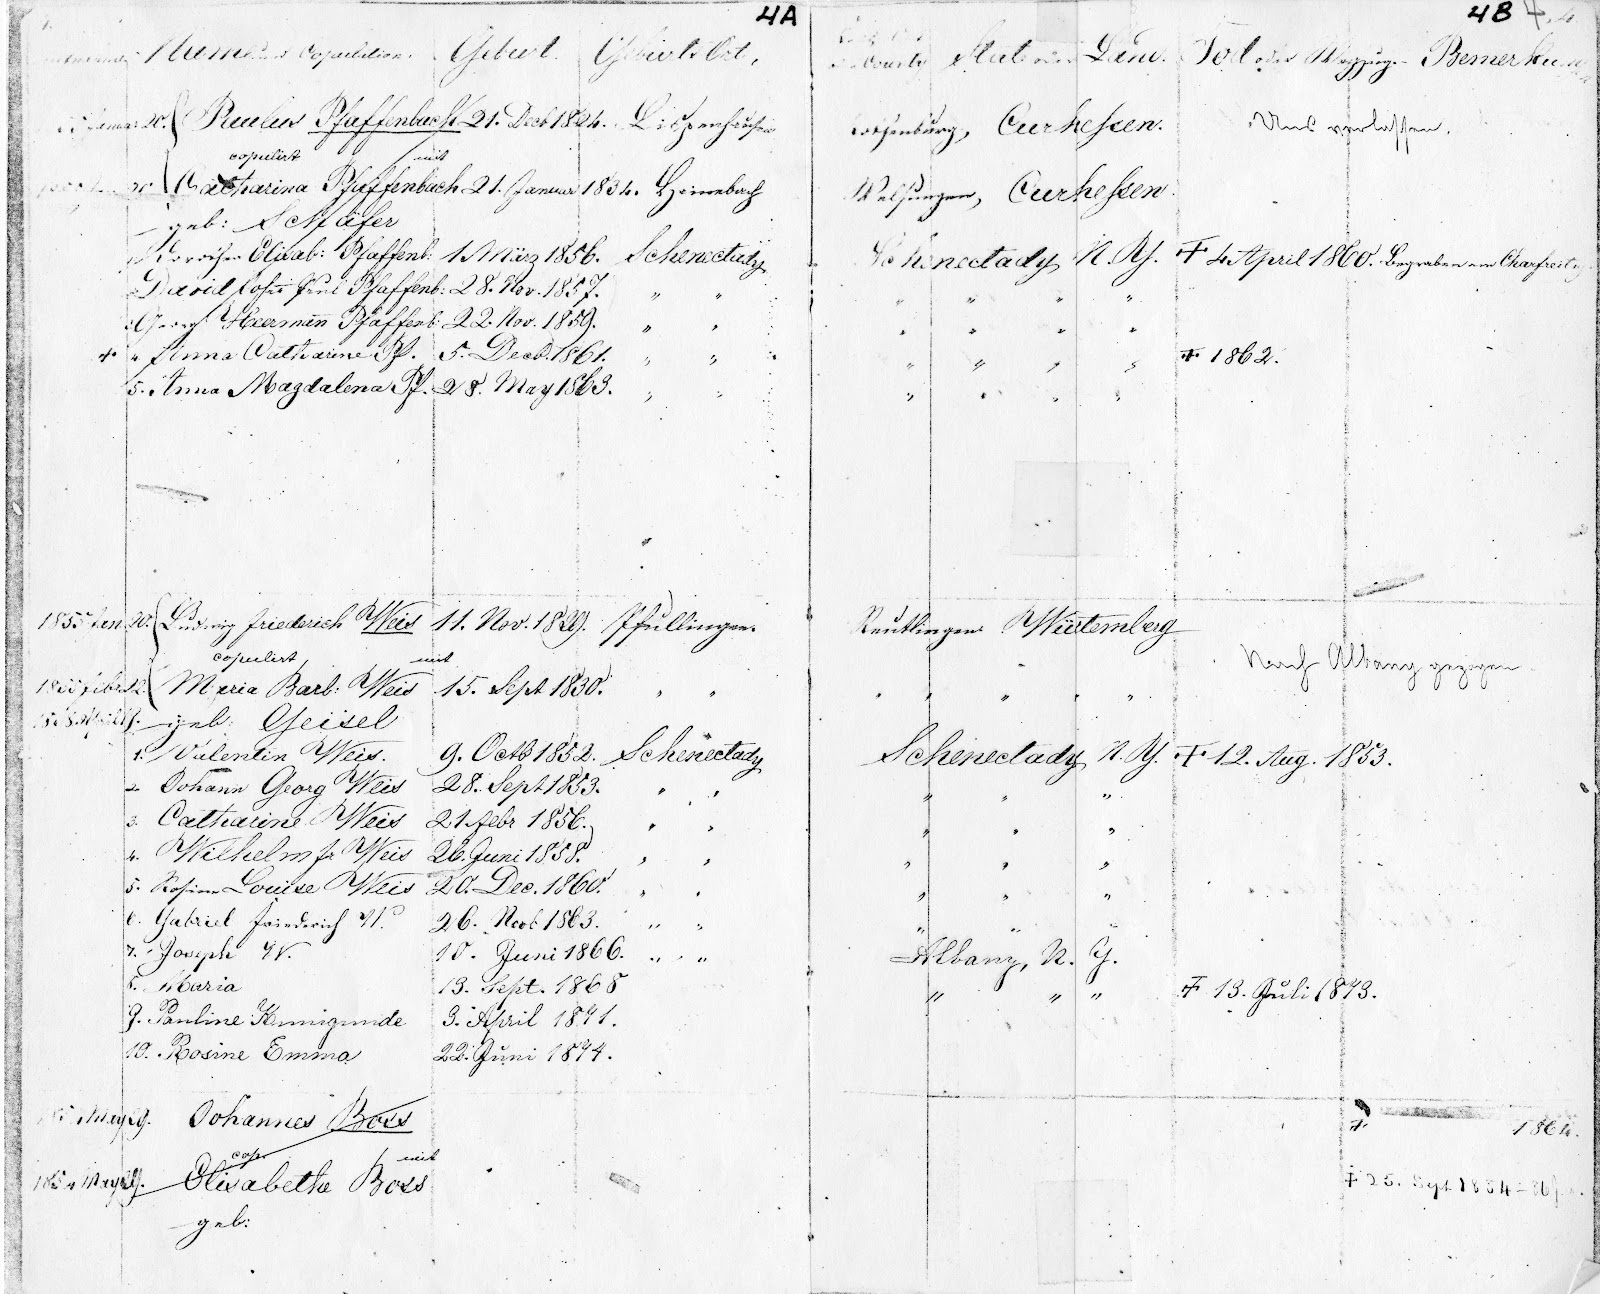 4A
4B
Name und Copulation. Geburt. Geburts Ort,
County Stat oder Land. Tod oder Wegzug. Bemerkung
20. Paulus Pfaffenbach 21. Decb 1824. Lispenhausen
Rothenburg, Curhessen. Uns verlassen.
copulirt mit
Catharina Pfaffenbach 21. Januar 1834. Heinebach
Melsungen, Curhessen.
geb: Schäfer
Dorothea Elisab: Pfaffenb: 1. März 1856. Schenectady
Schenectady N. Y. † 4 April 1860. Begraben am Charfreitag
David Pfaffenb: 28. Nov. 1857. " "
" " " "
Georg Herrmann Pfaffenb: 22. Nov. 1859. " "
" " " "
† " Anna Catharine Pf. 5. Decb. 1861. " "
" " " " † 1862.
5. Anna Magdalena Pf. 28. May 1863. " "
" " " "
1855 Jan 20. Ludwig Friederich Weis 11. Nov. 1829. Pfullingen.
Reutlingen Würtemberg
copulirt mit
Nach Albany gezogen.
Maria Barb: Weis 15. Sept 1830. " "
" " " " "
geb: Geisel
1. Valentin Weis. 9. Octb 1852. Schenectady
Schenectady N. Y. † 12. Aug. 1853.
2. Johann Georg Weis 28. Sept 1853. " "
" " "
3. Catharine Weis 21 Febr 1856. " "
" " "
4. Wilhelm Fr Weis 26. Juni 1858. " "
" " "
5. Rosine Louise Weis 20. Dec. 1860. " "
" " "
6. Gabriel Friederich W. 26. Novb 1863. " "
" " "
7. Joseph W. 10. Juni 1866. " "
Albany, N. Y.
8. Maria 13. Sept. 1868
" " " † 13. Juli 1873.
9. Pauline Kunigunde 3. April 1871.
10. Rosine Emma 22. Juni 1874.
May 29. Johannes Boss
† 1864.
cop. mit
1854 May 29. Elisabetha Boss
† 25. Sept 1884
geb: